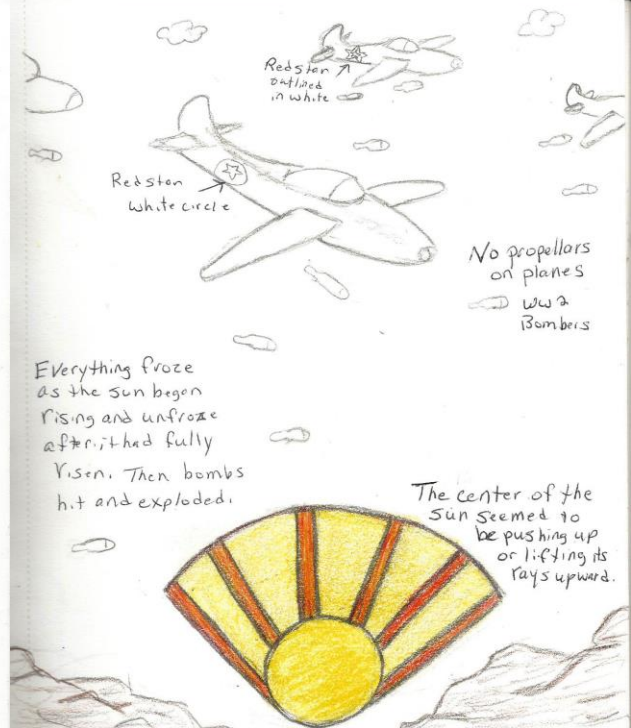 Redstar
outlined
in white
Redstar
white circle
No propellars
on planes
WW2
Bombers
Everything froze
as the sun began
rising and unfroze
after it had fully
risen. Then bombs
hit and exploded.
The center of the
sun seemed to
be pushing up
or lifting its
rays upward.